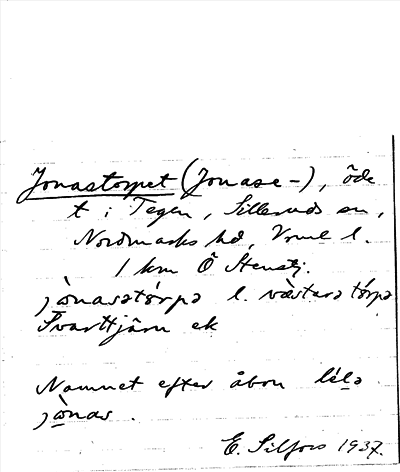 Jonastorpet (Jonase-), öde
t i Tegen, Silleruds sn,
Nordmarks hd, Vrml l.
1 km Ö Stenstj.
jònasətórpə l. væ̀stərə tórpə
Svarttjärn ek
Namnet efter åbon lélə
jònas.
E. Silfors 1937.